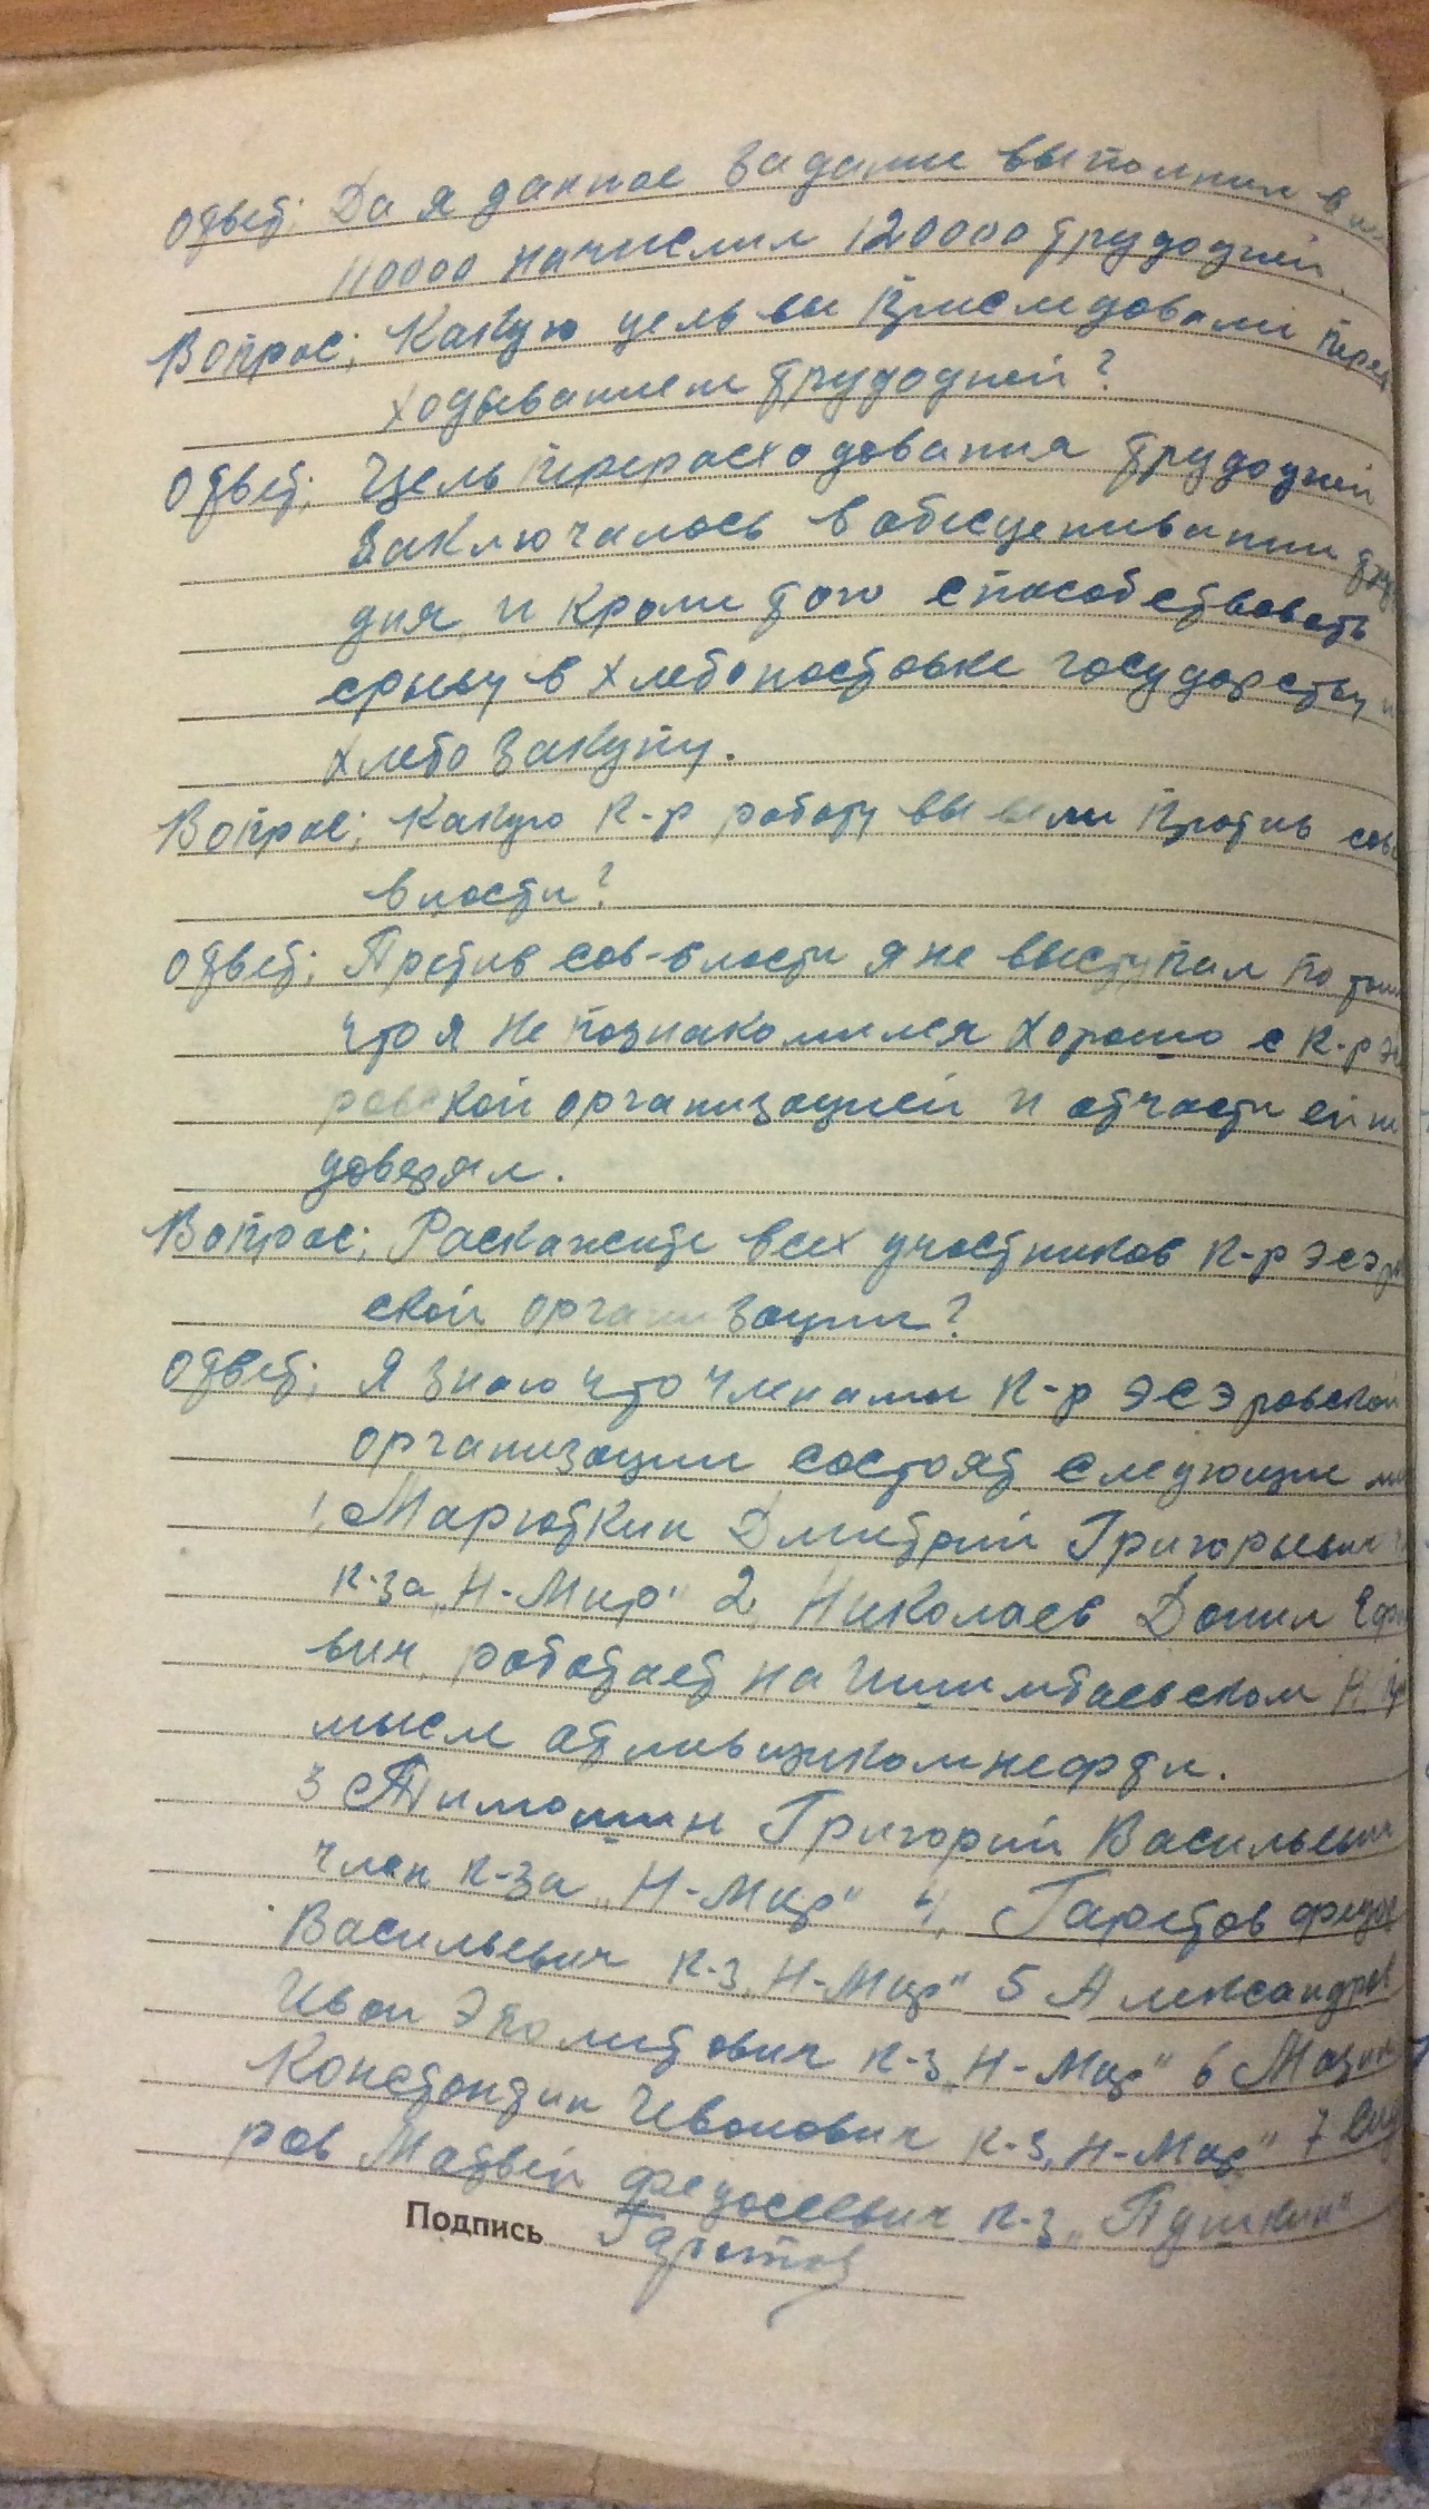 ответ; Да я данное задание выполнил
110000 начислил 120000 трудодней.
Вопрос; Какую цель вы приследовали перед
ходыванием трудодней?
ответ; Цель перерасходования трудодней
заключалось в обесценивании тру
дня, и кроме того способствовать
срыву в хлебопоставке государству и
хлебо закупу.
Вопрос; Какую к-р работу вы вели против сов
власти?
ответ; Против сов-власти я не выступал по тому
что я не познакомился хорошо с к-р эс
ровской организацией и отчасти ей не
доверял.
Вопрос; Раскажите всех участников к-р эсэров
ской организации?
ответ; Я знаю что членами к-р эсэровской
организации состоят следующие
1, Марюткин Дмитрий Григорьевич
к-за „Н-Мир" 2, Николаев Данил Ефи
вич, работает на Ишимбаевском Н. пр
мысле отливщиком нефти.
3 Тимошин Григорий Васильевич
член к-за „Н-Мир" 4, Гаретов Федор
Васильевич к-з „Н-Мир" 5 Александров
Иван Эполитович к-з „Н-Мир" 6 Мазин
Констонтин Иванович к-з „Н-Мир" 7
ров Матвей Федосеевич к-з „Пушкин"
Подпись Гаретов